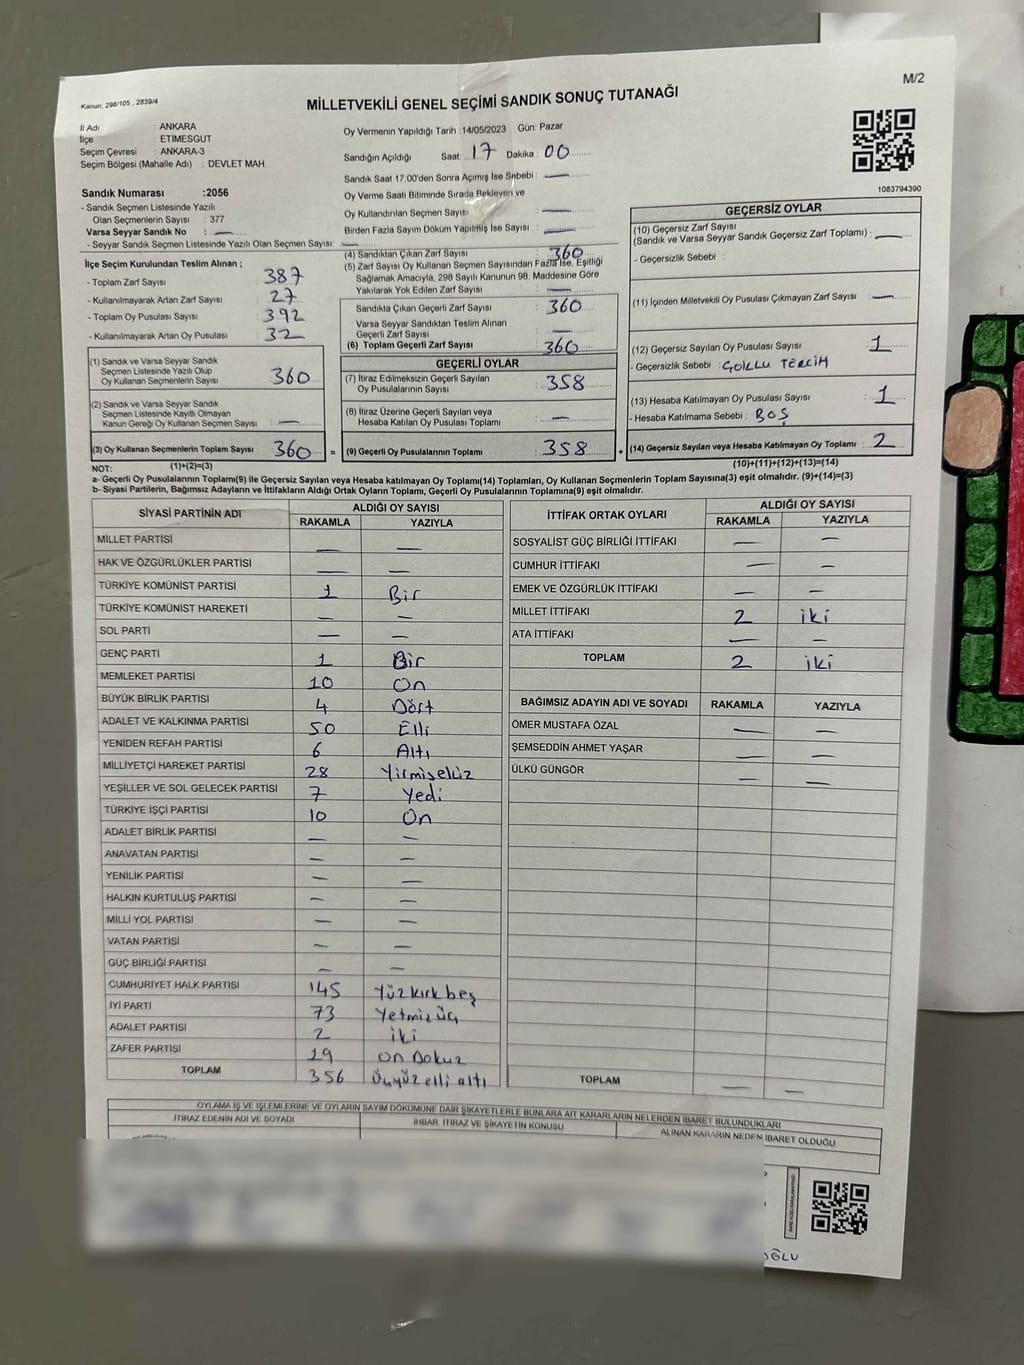 M/2
Kanun: 298/105 , 2839/4
MİLLETVEKİLİ GENEL SEÇİMİ SANDIK SONUÇ TUTANAĞI
İl Adı : ANKARA
İlçe : ETİMESGUT
Seçim Çevresi : ANKARA-3
Seçim Bölgesi (Mahalle Adı) : DEVLET MAH.
Oy Vermenin Yapıldığı Tarih : 14/05/2023 Gün: Pazar
Sandığın Açıldığı Saat : 17 Dakika : 00
Sandık Saat 17:00'den Sonra Açılmış İse Sebebi : —
Oy Verme Saati Bitiminde Sırada Bekleyen ve
Oy Kullandırılan Seçmen Sayısı : —
Birden Fazla Sayım Döküm Yapılmış İse Sayısı : —
1083794390
Sandık Numarası :2056
- Sandık Seçmen Listesinde Yazılı
Olan Seçmenlerin Sayısı : 377
Varsa Seyyar Sandık No : —
- Seyyar Sandık Seçmen Listesinde Yazılı Olan Seçmen Sayısı: —
İlçe Seçim Kurulundan Teslim Alınan ;
- Toplam Zarf Sayısı : 387
- Kullanılmayarak Artan Zarf Sayısı : 27
- Toplam Oy Pusulası Sayısı : 392
- Kullanılmayarak Artan Oy Pusulası : 32
(1) Sandık ve Varsa Seyyar Sandık
Seçmen Listesinde Yazılı Olup
Oy Kullanan Seçmenlerin Sayısı : 360
(2) Sandık ve Varsa Seyyar Sandık
Seçmen Listesinde Kayıtlı Olmayan
Kanun Gereği Oy Kullanan Seçmen Sayısı : —
(3) Oy Kullanan Seçmenlerin Toplam Sayısı : 360 =
(4) Sandıktan Çıkan Zarf Sayısı : 360
(5) Zarf Sayısı Oy Kullanan Seçmen Sayısından Fazla İse, Eşitliği
Sağlamak Amacıyla, 298 Sayılı Kanunun 98. Maddesine Göre
Yakılarak Yok Edilen Zarf Sayısı : —
Sandıkta Çıkan Geçerli Zarf Sayısı : 360
Varsa Seyyar Sandıktan Teslim Alınan
Geçerli Zarf Sayısı : —
(6) Toplam Geçerli Zarf Sayısı : 360
GEÇERLİ OYLAR
(7) İtiraz Edilmeksizin Geçerli Sayılan
Oy Pusulalarının Sayısı : 358
(8) İtiraz Üzerine Geçerli Sayılan veya
Hesaba Katılan Oy Pusulası Toplamı : —
(9) Geçerli Oy Pusulalarının Toplamı : 358 +
GEÇERSİZ OYLAR
(10) Geçersiz Zarf Sayısı
(Sandık ve Varsa Seyyar Sandık Geçersiz Zarf Toplamı) : —
- Geçersizlik Sebebi :
(11) İçinden Milletvekili Oy Pusulası Çıkmayan Zarf Sayısı : —
(12) Geçersiz Sayılan Oy Pusulası Sayısı : 1
- Geçersizlik Sebebi : ÇOKLU TERCİH
(13) Hesaba Katılmayan Oy Pusulası Sayısı : 1
- Hesaba Katılmama Sebebi : BOŞ
(14) Geçersiz Sayılan veya Hesaba Katılmayan Oy Toplamı : 2
NOT: (1)+(2)=(3) (10)+(11)+(12)+(13)=(14)
a- Geçerli Oy Pusulalarının Toplamı(9) ile Geçersiz Sayılan veya Hesaba Katılmayan Oy Toplamı(14) Toplamları, Oy Kullanan Seçmenlerin Toplam Sayısına(3) eşit olmalıdır. (9)+(14)=(3)
b- Siyasi Partilerin, Bağımsız Adayların ve İttifakların Aldığı Ortak Oyların Toplamı, Geçerli Oy Pusulalarının Toplamına(9) eşit olmalıdır.
SİYASİ PARTİNİN ADI ALDIĞI OY SAYISI
RAKAMLA YAZIYLA
MİLLET PARTİSİ — —
HAK VE ÖZGÜRLÜKLER PARTİSİ — —
TÜRKİYE KOMÜNİST PARTİSİ 1 Bir
TÜRKİYE KOMÜNİST HAREKETİ — —
SOL PARTİ — —
GENÇ PARTİ 1 Bir
MEMLEKET PARTİSİ 10 On
BÜYÜK BİRLİK PARTİSİ 4 Dört
ADALET VE KALKINMA PARTİSİ 50 Elli
YENİDEN REFAH PARTİSİ 6 Altı
MİLLİYETÇİ HAREKET PARTİSİ 28 Yirmisekiz
YEŞİLLER VE SOL GELECEK PARTİSİ 7 Yedi
TÜRKİYE İŞÇİ PARTİSİ 10 On
ADALET BİRLİK PARTİSİ — —
ANAVATAN PARTİSİ — —
YENİLİK PARTİSİ — —
HALKIN KURTULUŞ PARTİSİ — —
MİLLİ YOL PARTİSİ — —
VATAN PARTİSİ — —
GÜÇ BİRLİĞİ PARTİSİ — —
CUMHURİYET HALK PARTİSİ 145 Yüzkırkbeş
İYİ PARTİ 73 Yetmişüç
ADALET PARTİSİ 2 iki
ZAFER PARTİSİ 19 on Dokuz
TOPLAM 356 Üçyüzelli altı
İTTİFAK ORTAK OYLARI ALDIĞI OY SAYISI
RAKAMLA YAZIYLA
SOSYALİST GÜÇ BİRLİĞİ İTTİFAKI — —
CUMHUR İTTİFAKI — —
EMEK VE ÖZGÜRLÜK İTTİFAKI — —
MİLLET İTTİFAKI 2 iki
ATA İTTİFAKI — —
TOPLAM 2 iki
BAĞIMSIZ ADAYIN ADI VE SOYADI RAKAMLA YAZIYLA
ÖMER MUSTAFA ÖZAL — —
ŞEMSEDDİN AHMET YAŞAR — —
ÜLKÜ GÜNGÖR — —
TOPLAM — —
OYLAMA İŞ VE İŞLEMLERİNE VE OYLARIN SAYIM DÖKÜMÜNE DAİR ŞİKAYETLERLE BUNLARA AİT KARARLARIN NELERDEN İBARET BULUNDUKLARI
İTİRAZ EDENİN ADI VE SOYADI İHBAR, İTİRAZ VE ŞİKAYETİN KONUSU ALINAN KARARIN NEDEN İBARET OLDUĞU
OĞLU